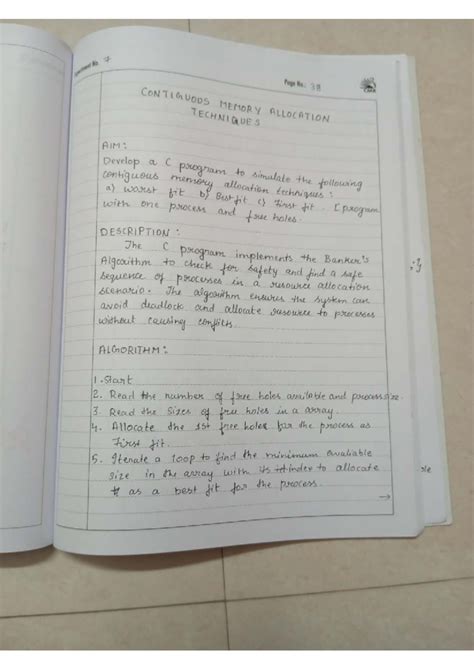 Experiment No. 7
Page No.: 38
CMR
CONTIGUOUS MEMORY ALLOCATION
TECHNIQUES
AIM:
Develop a C program to simulate the following
contiguous memory allocation techniques:
a) Worst fit b) Best fit c) First fit. [program
with one process and free holes.
DESCRIPTION:
The C program implements the Banker's
Algorithm to check for safety and find a safe
sequence of processes in a resource allocation
scenario. The algorithm ensures the system can
avoid deadlock and allocate resource to processes
without causing conflicts.
ALGORITHM:
1. Start
2. Read the number of free holes available and process size.
3. Read the sizes of free holes in a array.
4. Allocate the 1st free holes for the process as
First fit.
5. Iterate a loop to find the minimum available
size in the array with its index to allocate
as a best fit for the process.
→